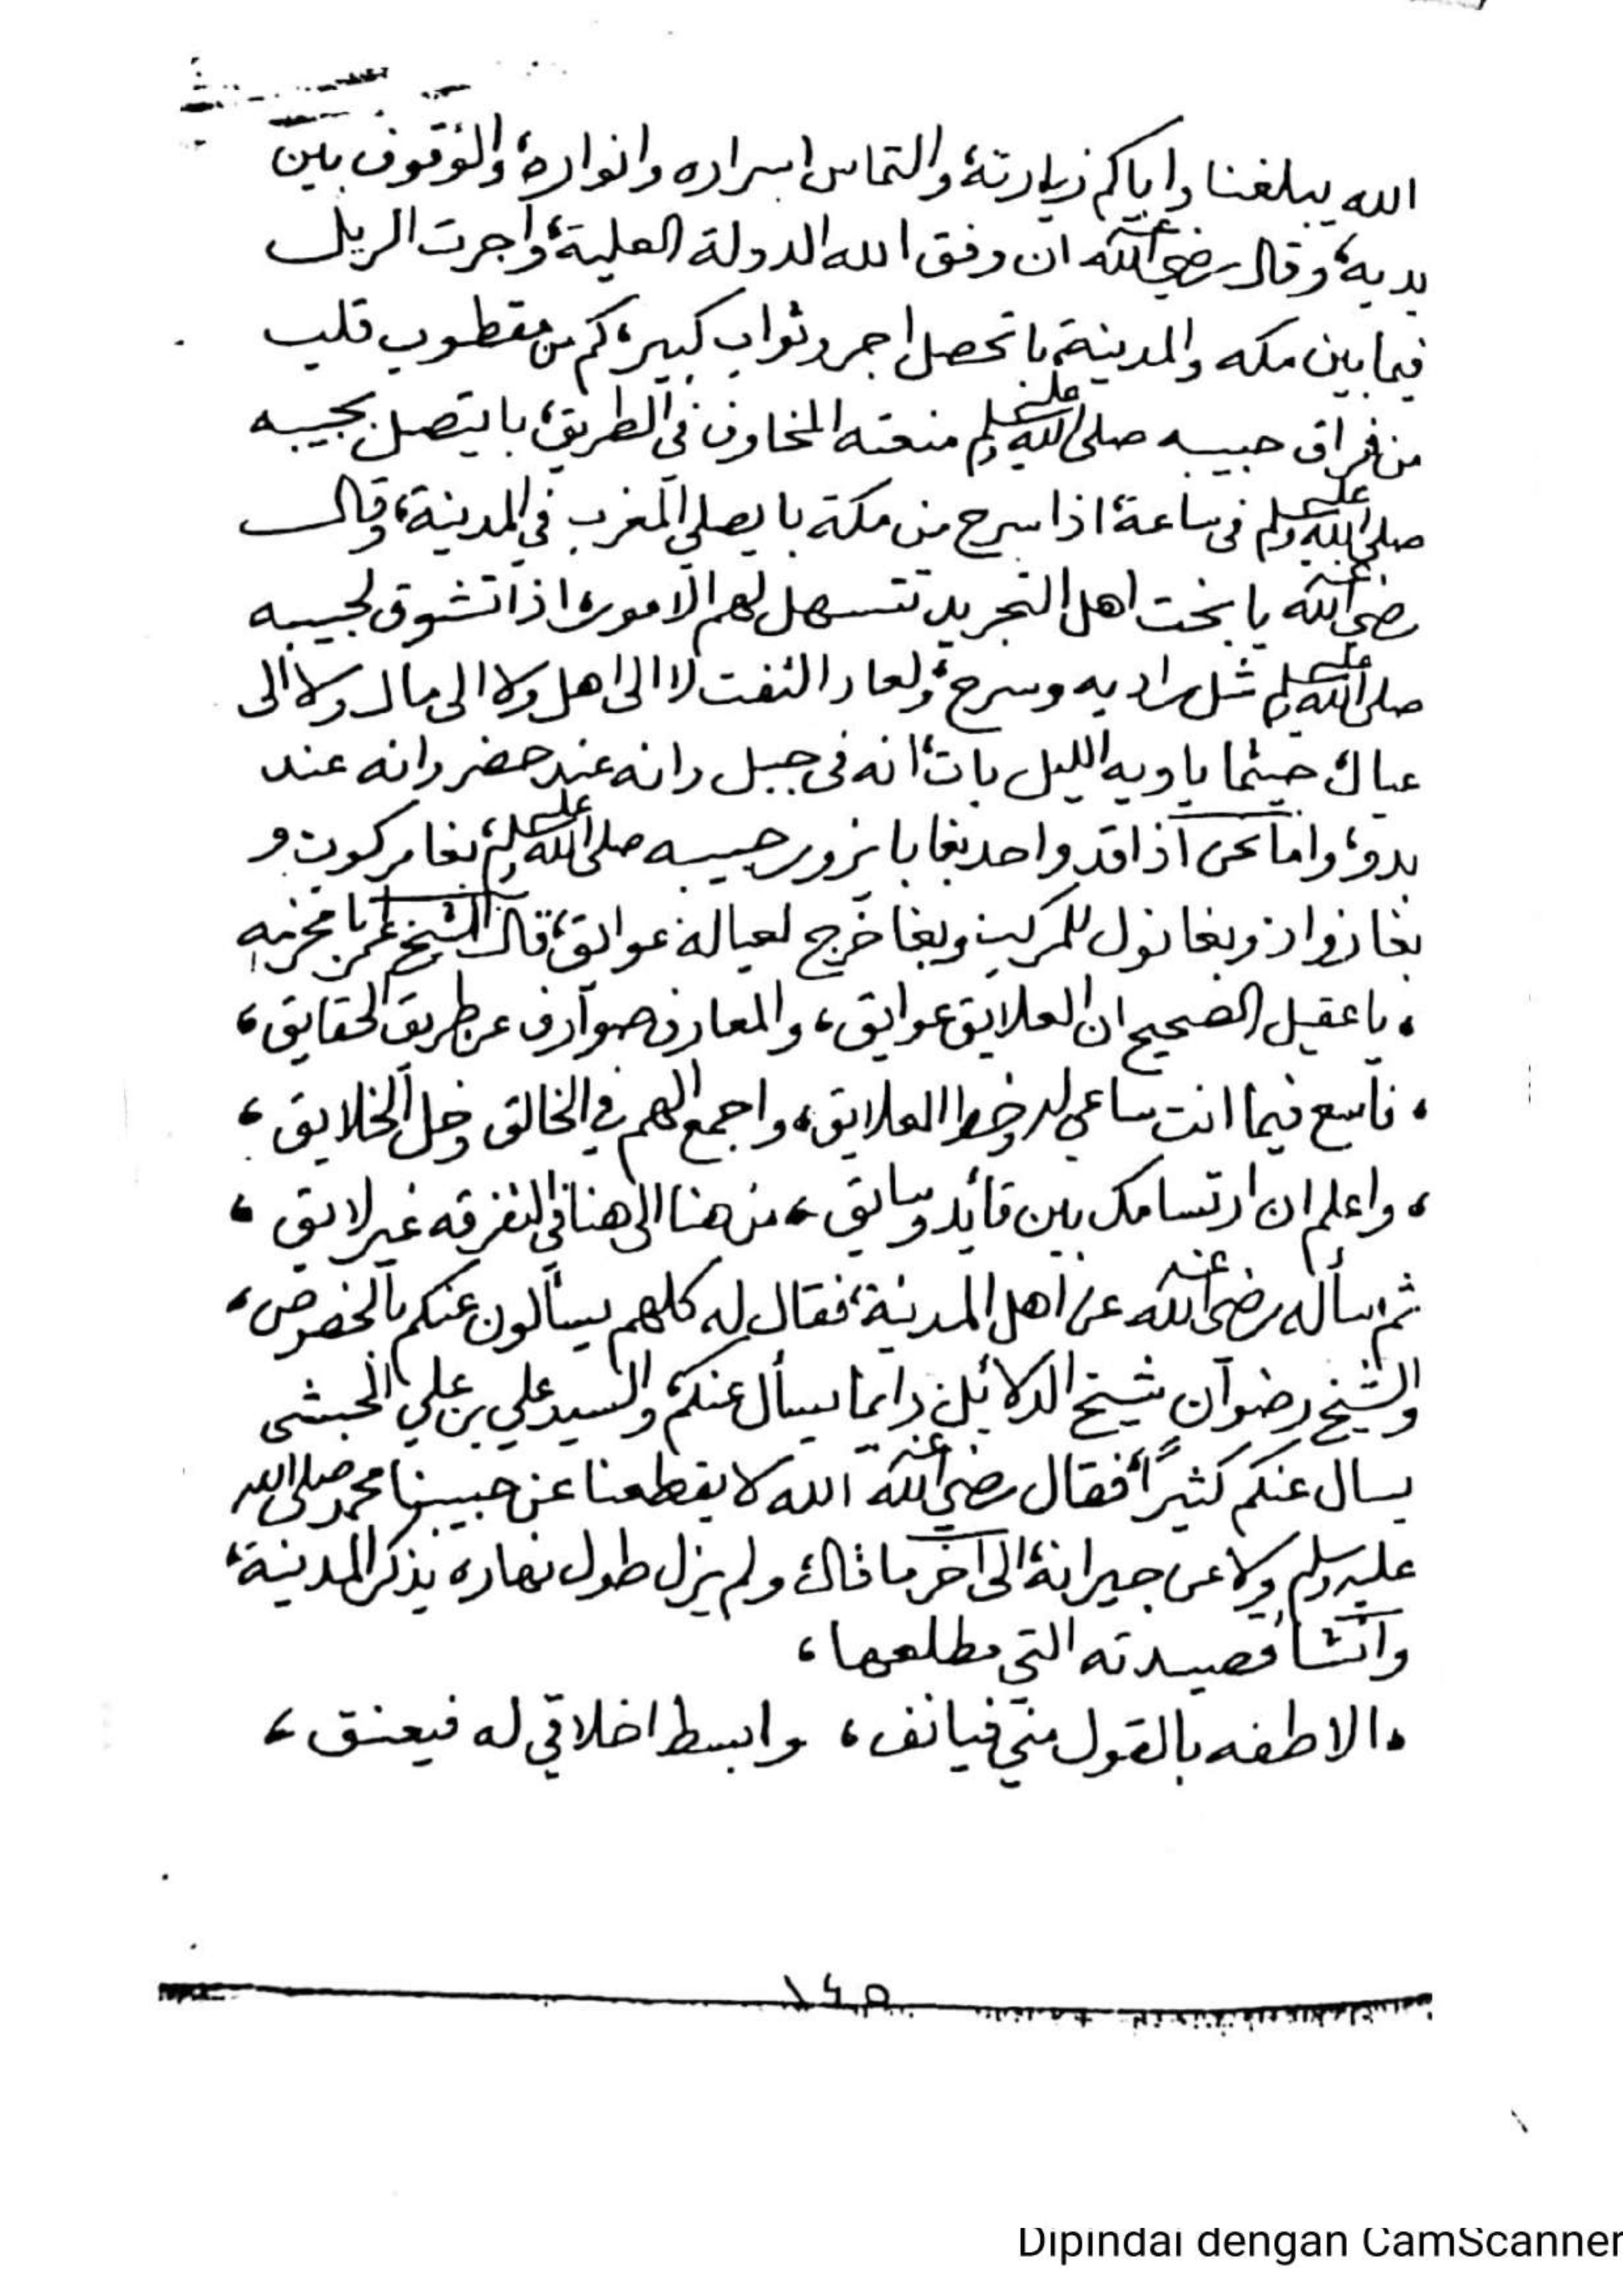 الله يبلغنا واياكم زيارته، والتماس اسراره وانواره، والوقوف بين
يديه، وقال رضي الله عنه ان وفق الله الدولة العلية، واجرت الريل
فيما بين مكه والمدينة، با تحصل اجر وثواب كبير، كم من مقطوب قلب
من فراق حبيبه صلى الله عليه وسلم منعته المخاوف في الطريق، با يتصل بحبيبه
صلى الله عليه وسلم في ساعة، اذا سرح من مكة با يصلي المغرب في المدينة، وقال
رضي الله عنه يا بخت اهل التجريد تتسهل لهم الامور، اذا تشوق لحبيبه
صلى الله عليه وسلم شل براديه وسرح، ولعاد التفت لا الى اهل ولا الى مال ولا الى
عيال، حيثما ياويه الليل بات، انه في جبل وانه عند حضر وانه عند
بدو، واما نحن اذا قد واحد بغا با يزور حبيبه صلى الله عليه وسلم، بغا مركوب و
بغا زواد وبغا نول للمركب وبغا خرج لعياله عوايق، قال الشيخ عمر بامخرمه
، يا عقيل الصحيح ان العلايق عوايق، والمعارف صوارف عن طريق الحقايق،
، فاسع فيما انت ساعي له العلايق، واجمع الهم في الخالق وخل الخلايق،
، واعلم ان ارتسامك بين قائد وسايق، من هنا الى هنا في التفرقه غير لايق،
ثم سأله رضي الله عنه عن اهل المدينة، فقال له كلهم يسألون عنكم بالخصوص،
والشيخ رضوان شيخ الدلائل، دائما يسأل عنكم، والسيد علي بن علي الحبشي
يسال عنكم كثيرًا، فقال رضي الله عنه الله لا يقطعنا عن حبيبنا محمد صلى الله
عليه وسلم ولا عن جيرانه، الى آخر ما قال، ولم يزل طول نهاره يذكر المدينة،
وانشا قصيدته التي مطلعها،
، الاطفه بالقول مني فيانف، وابسط اخلاقي له فيعنق،
١٤٥
Dipindai dengan CamScanner